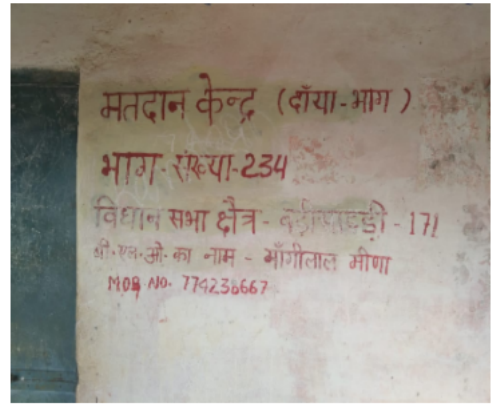 मतदान केन्द्र (दाँया-भाग)
भाग-संख्या-234
विधान सभा क्षैत्र - - 171
बी.एल.ओ. का नाम - माँगीलाल मीणा
MOB NO. 774238667